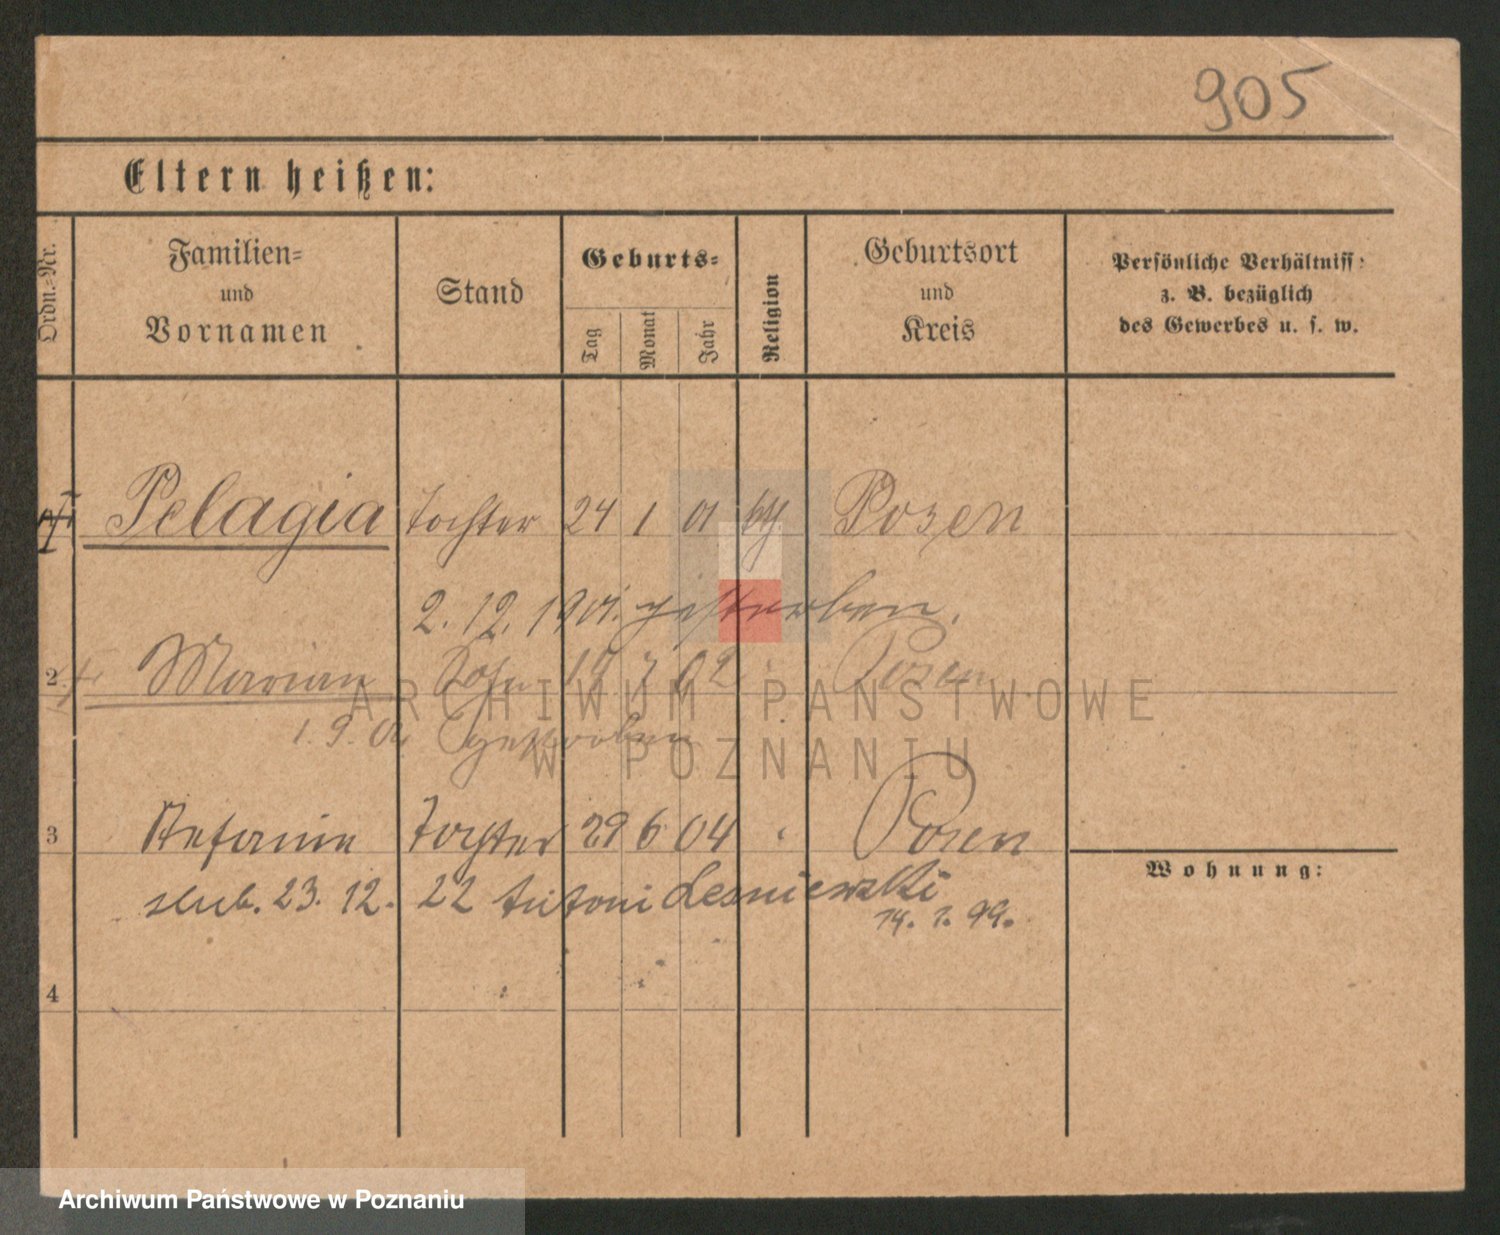 905
Eltern heißen:
Ordn.-Nr.
Familien-
und
Vornamen
Stand
Geburts-
Tag
Monat
Jahr
Religion
Geburtsort
und
Kreis
Persönliche Verhältniss:
z. B. bezüglich
des Gewerbes u. s. w.
Pelagia Tochter 24 1 01 Posen
2. 12. 1901. gestorben.
2 Marian Sohn 19 7 02 Posen
1. 9. 02 gestorben
3 Stefanie Tochter 29 6 04 Posen
ślub. 23. 12. 22 Antoni Lesniewski
14. 1. 99.
Wohnung:
4
ARCHIWUM PAŃSTWOWE
W POZNANIU
Archiwum Państwowe w Poznaniu